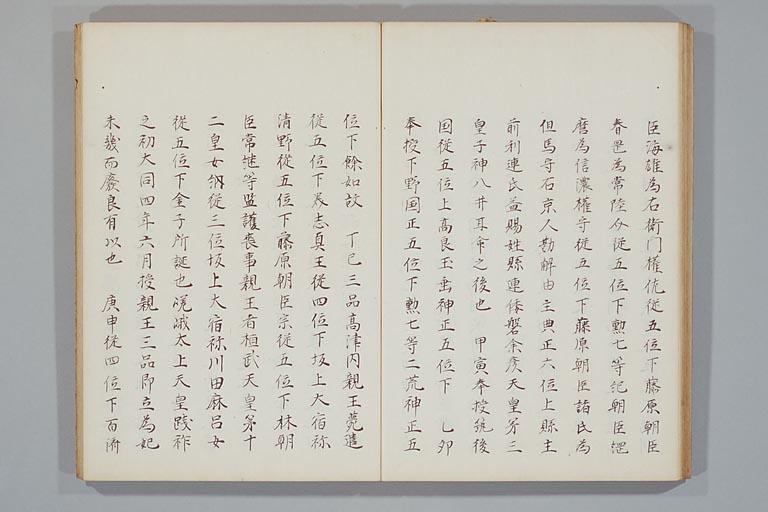 臣海雄為右衛門權佐従五位下藤原朝臣
春𦊆為常陸介従五位下勲七等紀朝臣綱
麿為信濃權守従五位下藤原朝臣諸氏為
但馬守右京人勘解由主典正六位上縣主
前利連氏益賜姓縣連倭磐余彦天皇第三
皇子神八井耳命之後也 甲寅奉授筑後
国従五位上高良玉垂神正五位下 乙卯
奉授下野国正五位下勲七等二荒神正五
位下餘如故 丁巳三品高津内親王薨遣
従五位下 志真王従四位下坂上大宿祢
清野従五位下藤原朝臣宗従五位下林朝
臣常継等監護喪事親王者桓武天皇第十
二皇女納従三位坂上大宿祢川田麻呂女
従五位下全子所誕也嵯峨太上天皇践祚
之初大同四年六月授親王三品即立為妃
未幾而廢良有以也 庚申従四位下百済